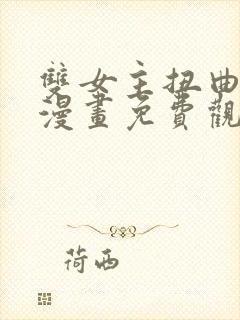 雙女主扭曲
漫畫免費觀
荷西